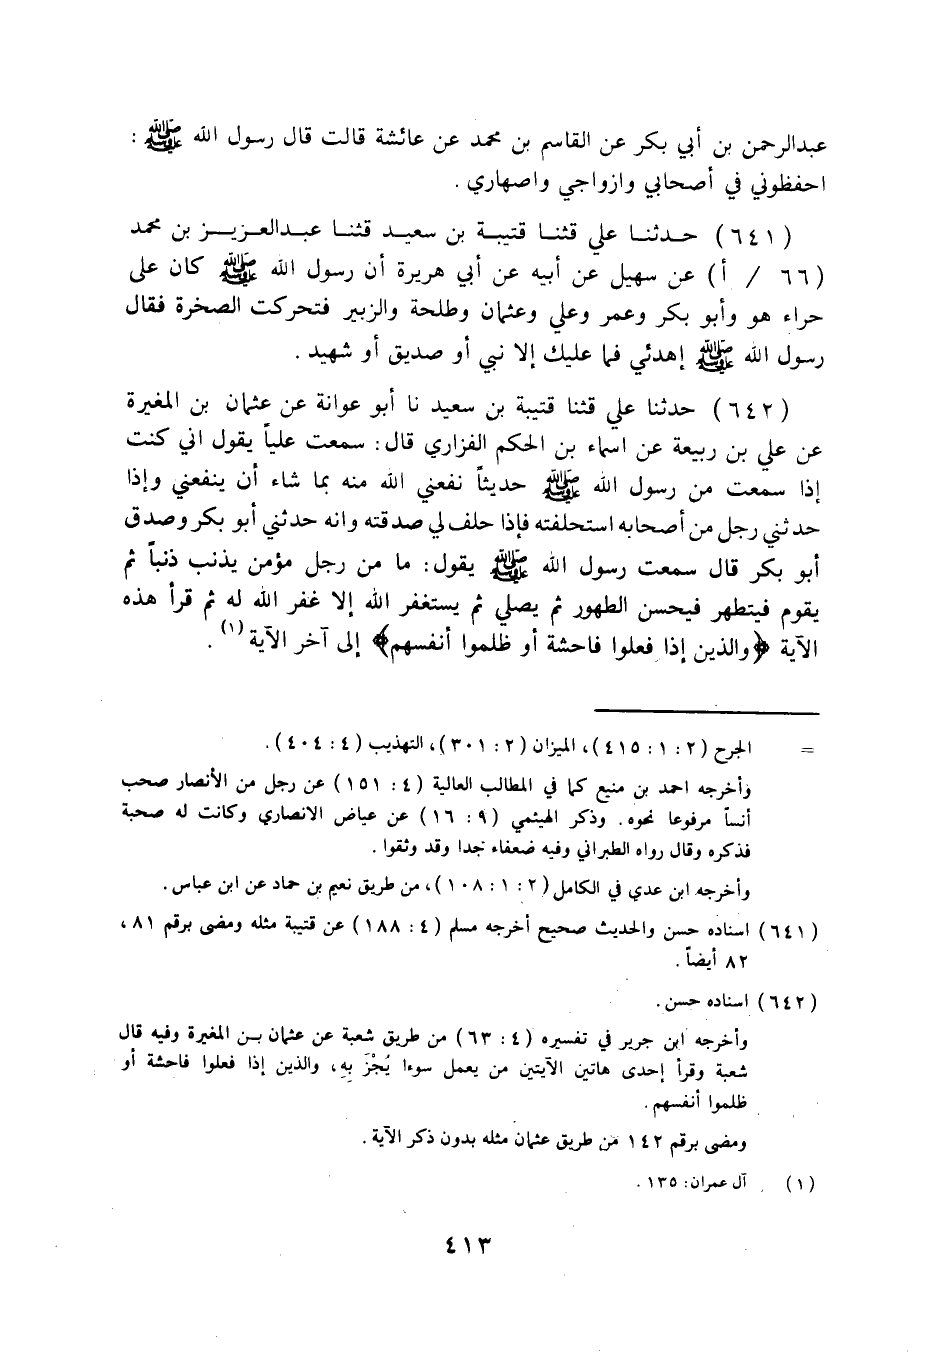 عبدالرحمن بن أبي بكر عن القاسم بن محمد عن عائشة قالت قال رسول الله ﷺ :
احفظوني في أصحابي وازواجي واصهاري .
(٦٤١) حدثنا علي قثنا قتيبة بن سعيد قثنا عبدالعزيز بن محمد
(٦٦ / أ) عن سهيل عن أبيه عن أبي هريرة أن رسول الله ﷺ كان على
حراء هو وأبو بكر وعمر وعلي وعثمان وطلحة والزبير فتحركت الصخرة فقال
رسول الله ﷺ إهدئي فما عليك إلا نبي أو صديق أو شهيد .
(٦٤٢) حدثنا علي قثنا قتيبة بن سعيد نا أبو عوانة عن عثمان بن المغيرة
عن علي بن ربيعة عن اسماء بن الحكم الفزاري قال : سمعت علياً يقول اني كنت
إذا سمعت من رسول الله ﷺ حديثاً نفعني الله منه بما شاء أن ينفعني وإذا
حدثني رجل من أصحابه استحلفته فإذا حلف لي صدقته وانه حدثني أبو بكر وصدق
أبو بكر قال سمعت رسول الله ﷺ يقول : ما من رجل مؤمن يذنب ذنباً ثم
يقوم فيتطهر فيحسن الطهور ثم يصلي ثم يستغفر الله إلا غفر الله له ثم قرأ هذه
الآية ﴿والذين إذا فعلوا فاحشة أو ظلموا أنفسهم﴾ إلى آخر الآية (١) .
= الجرح (٢ : ١ : ٤١٥)، الميزان (٢ : ٣٠١)، التهذيب (٤ : ٤٠٤).
وأخرجه احمد بن منيع كما في المطالب العالية (٤ : ١٥١) عن رجل من الأنصار صحب
أنساً مرفوعا نحوه . وذكر الهيثمي (٩ : ١٦) عن عياض الانصاري وكانت له صحبة
فذكره وقال رواه الطبراني وفيه ضعفاء جدا وقد وثقوا .
وأخرجه ابن عدي في الكامل (٢ : ١ : ١٠٨)، من طريق نعيم بن حماد عن ابن عباس .
(٦٤١) اسناده حسن والحديث صحيح أخرجه مسلم (٤ : ١٨٨) عن قتيبة مثله ومضى برقم ٨١ ،
٨٢ أيضاً .
(٦٤٢) اسناده حسن .
وأخرجه ابن جرير في تفسيره (٤ : ٦٣) من طريق شعبة عن عثمان بن المغيرة وفيه قال
شعبة وقرأ إحدى هاتين الآيتين من يعمل سوءا يُجْزَ بِهِ، والذين إذا فعلوا فاحشة أو
ظلموا أنفسهم .
ومضى برقم ١٤٢ من طريق عثمان مثله بدون ذكر الآية .
(١) آل عمران : ١٣٥ .
٤١٣